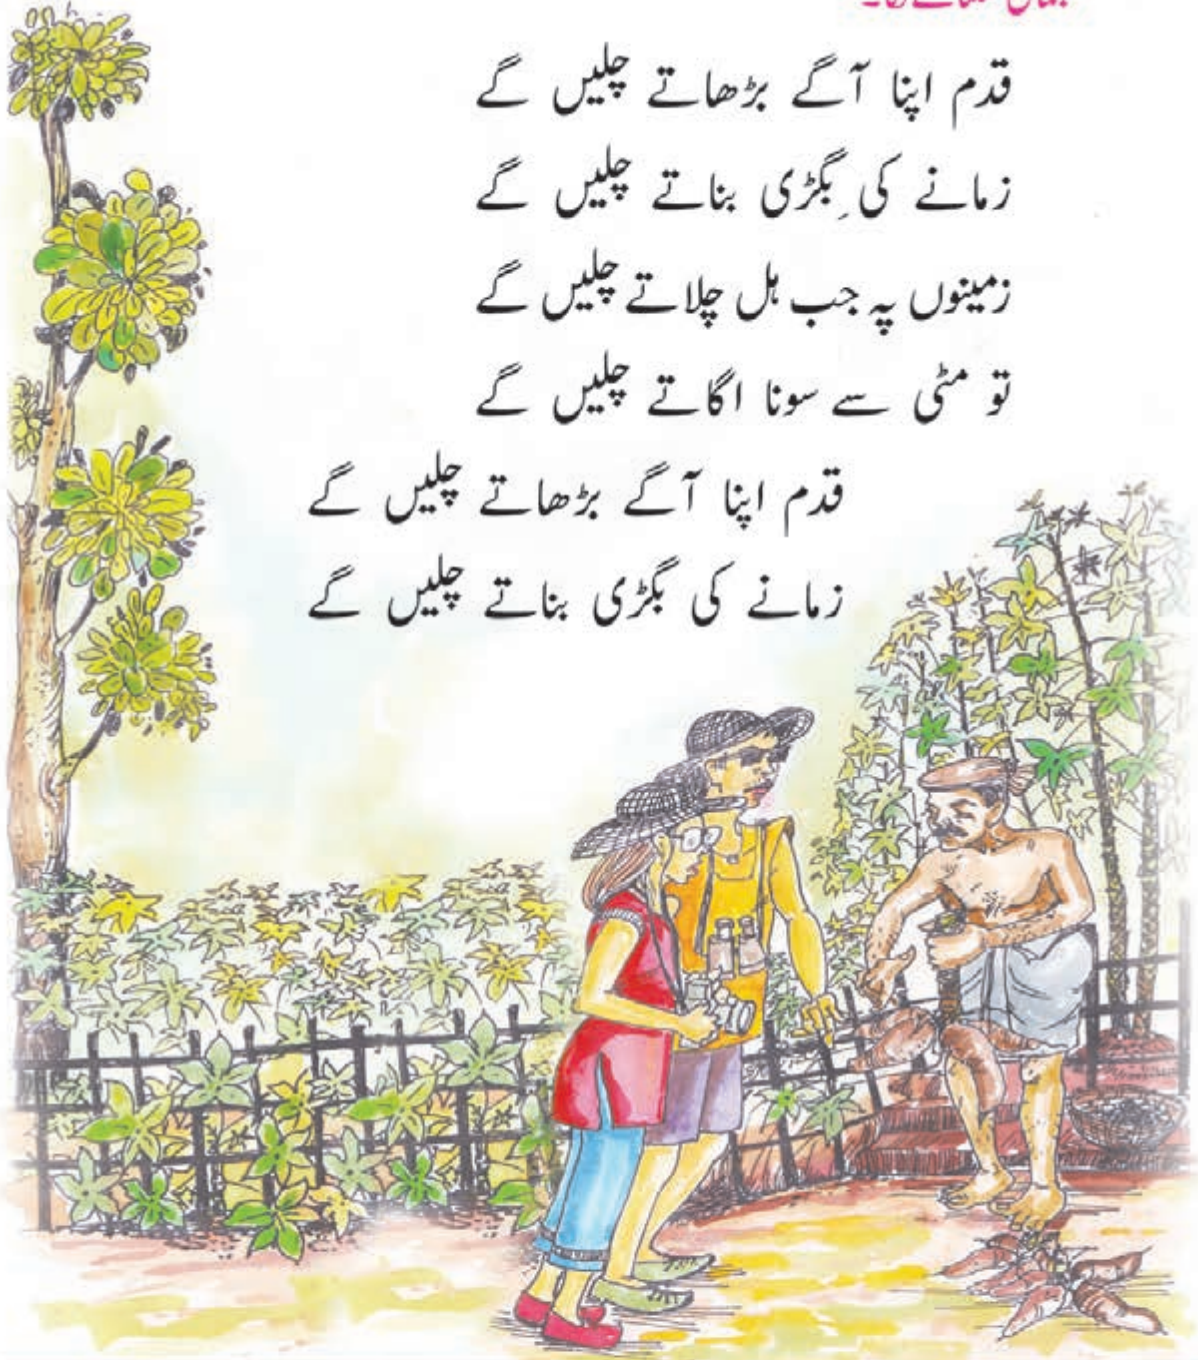 قدم اپنا آگے بڑھاتے چلیں گے
زمانے کی بِگڑی بناتے چلیں گے
زمینوں پہ جب ہل چلاتے چلیں گے
تو مٹی سے سونا اگاتے چلیں گے
قدم اپنا آگے بڑھاتے چلیں گے
زمانے کی بگڑی بناتے چلیں گے